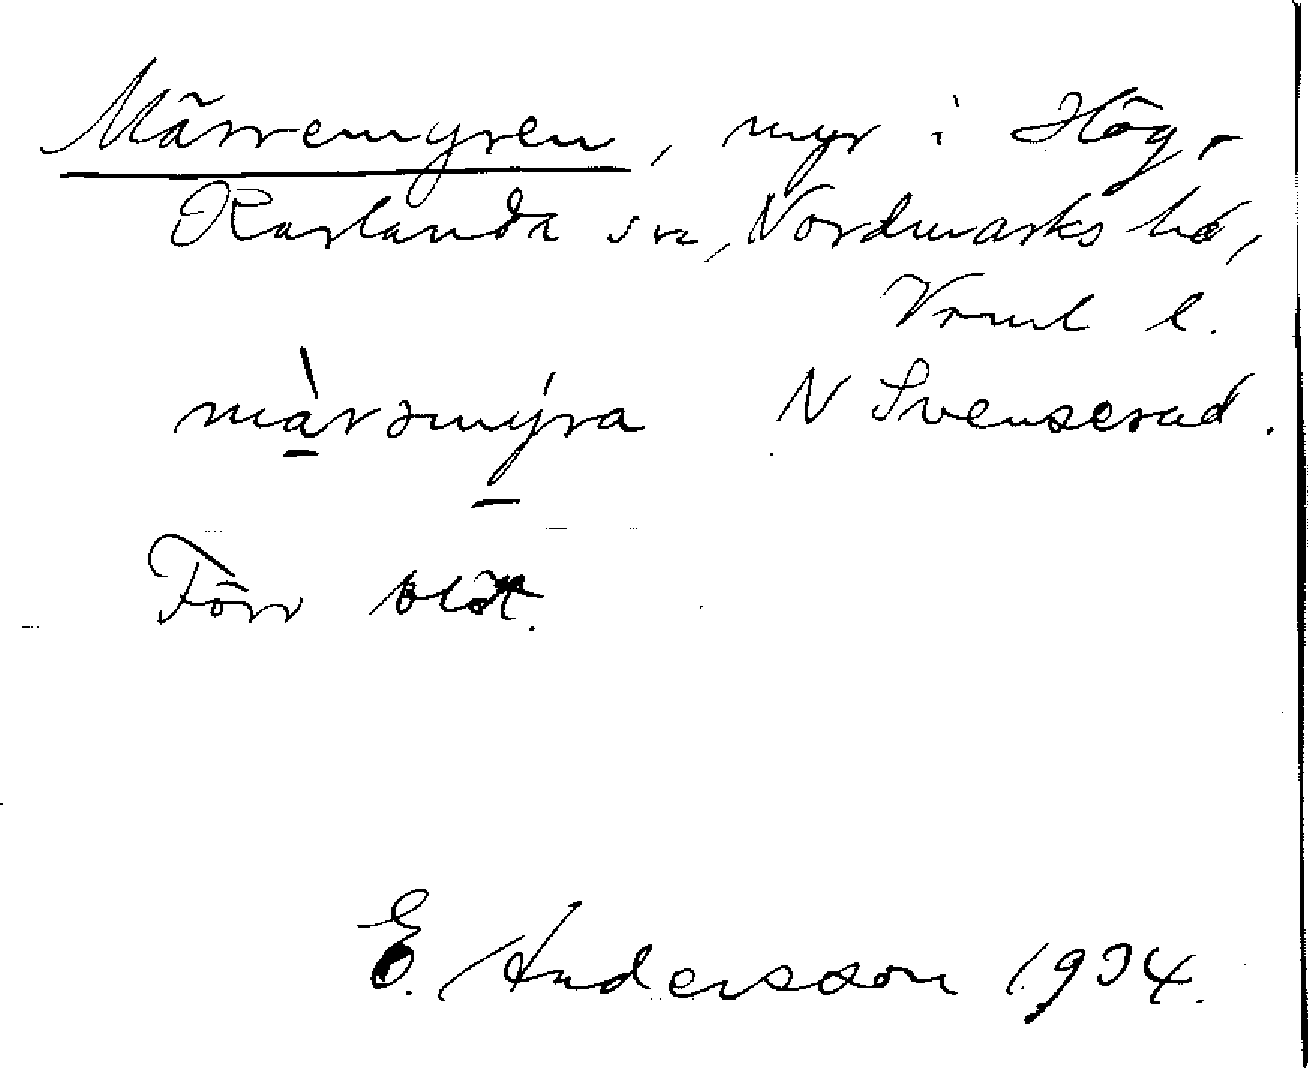 Märremyren, myr i Hög-
Karlanda sn, Nordmarks hd,
Vrml l.
màrəmýra N Svenserud.
Förr blöt.
E. Andersson 1934.